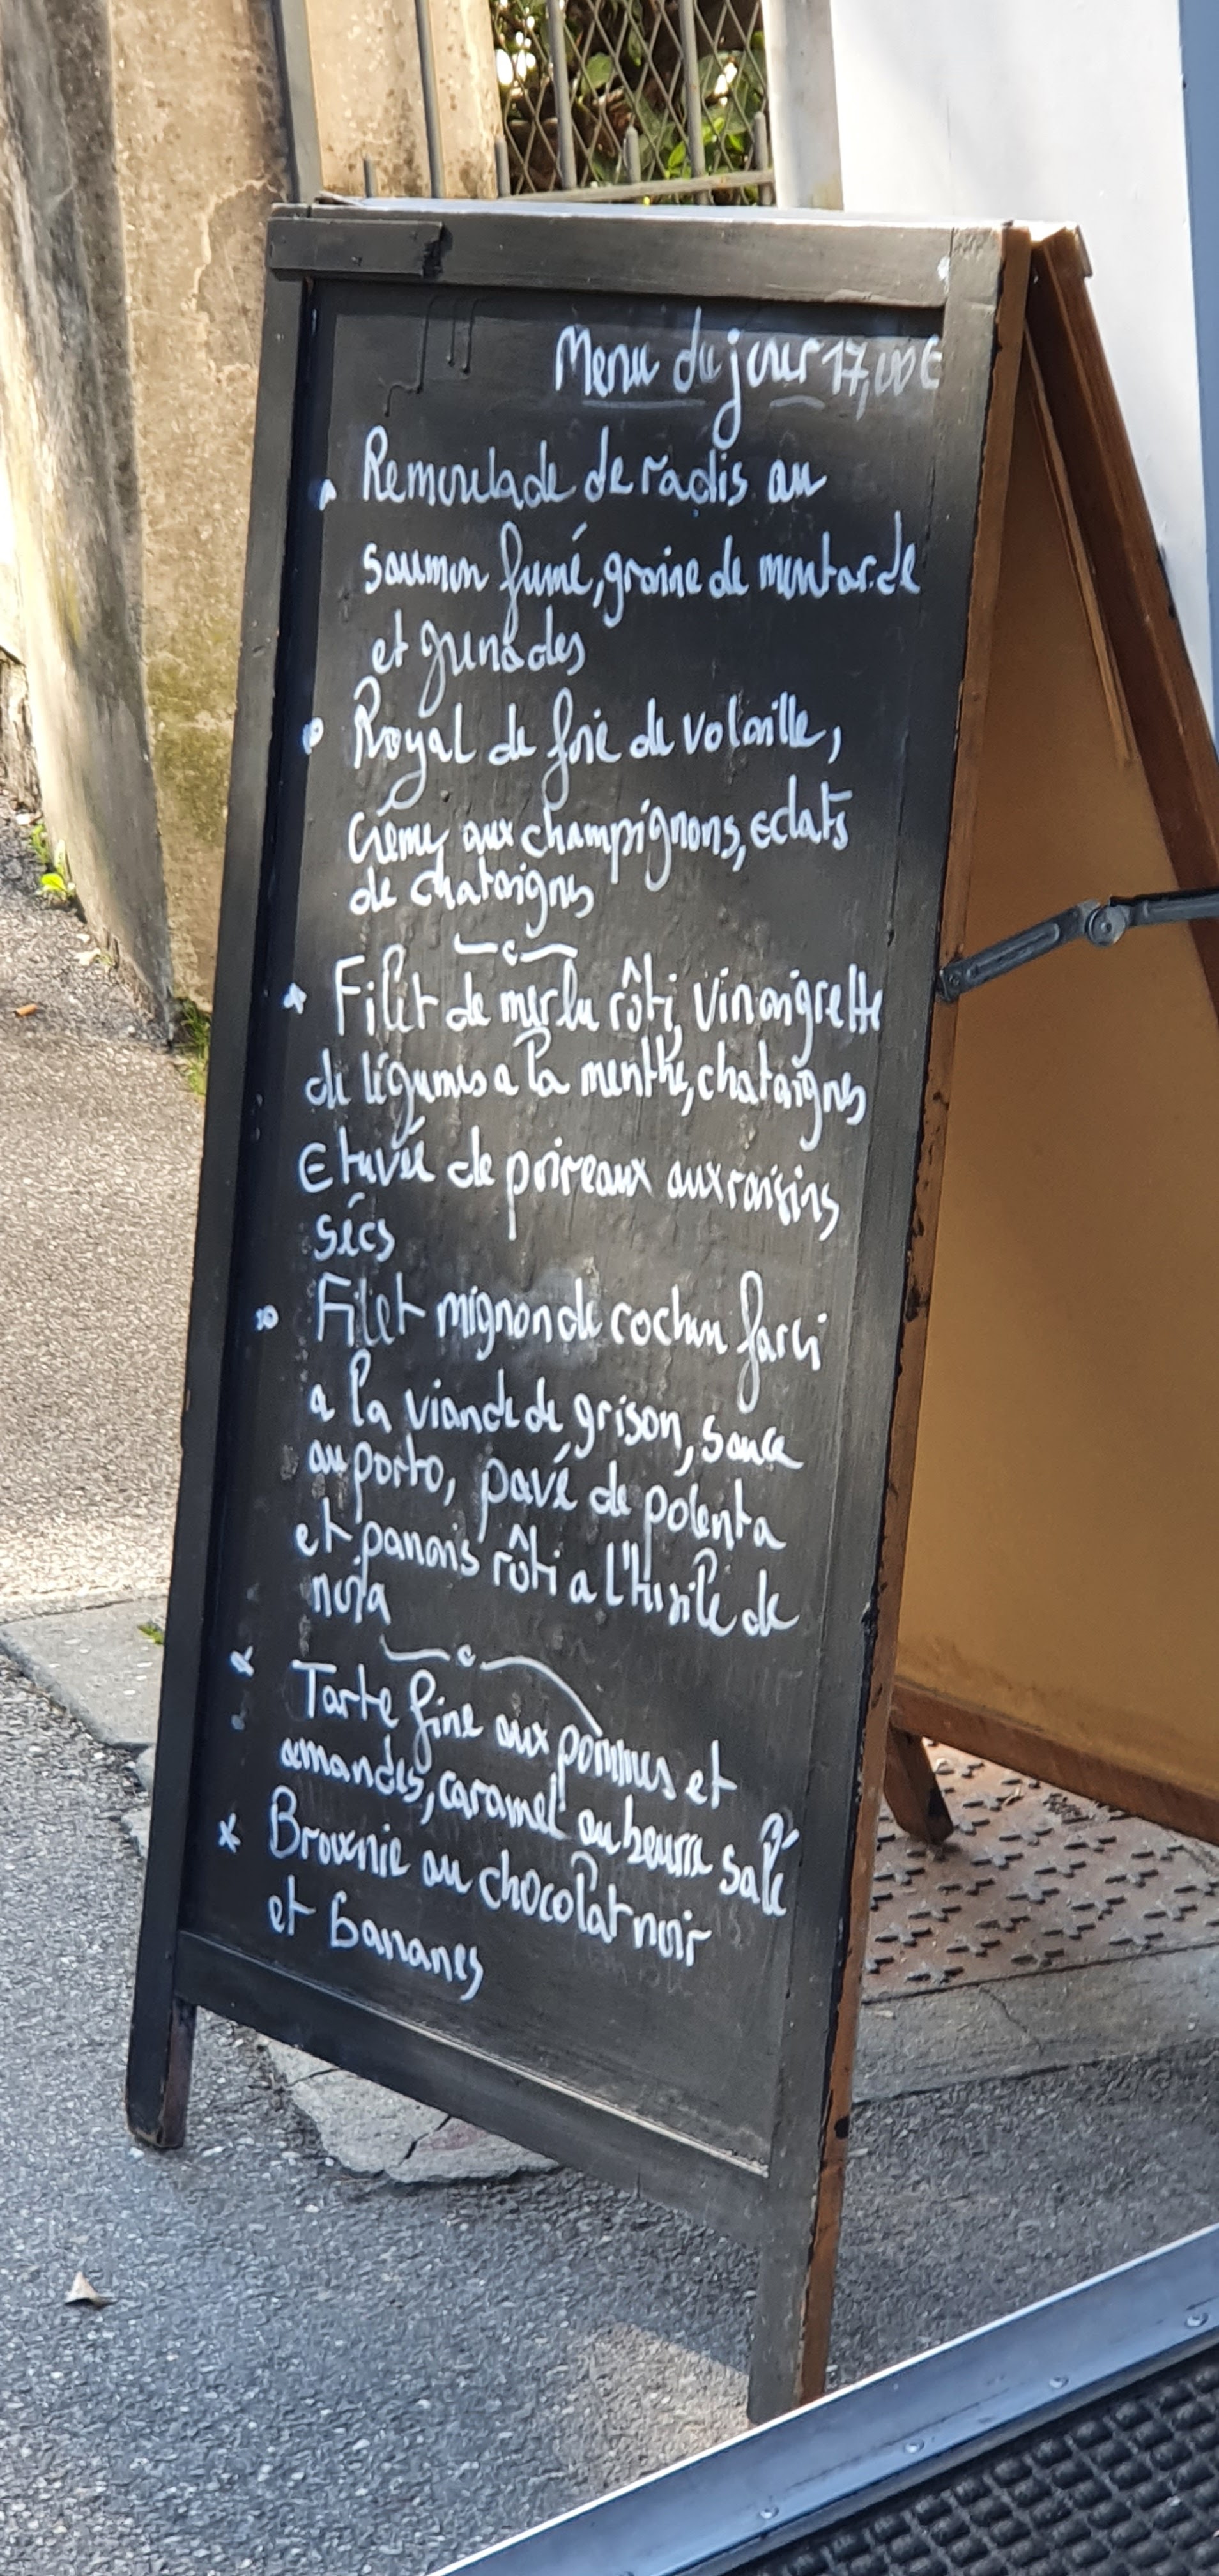 Menu du jour 17,00€
Remoulade de radis au
saumon fumé, graine de moutarde
et grenades
Royal de foie de volaille,
crème aux champignons, eclats
de chataignes
Filet de merlu rôti, vinaigrette
de légumes a la menthe, chataignes
Etuvée de poireaux aux raisins
sécs
Filet mignon de cochon farci
a la viande de grison, sauce
au porto, pavé de polenta
et panais rôti a l'huile de
Tarte fine aux pommes et
amandes, caramel au beurre salé
Brownie au chocolat noir
et bananes